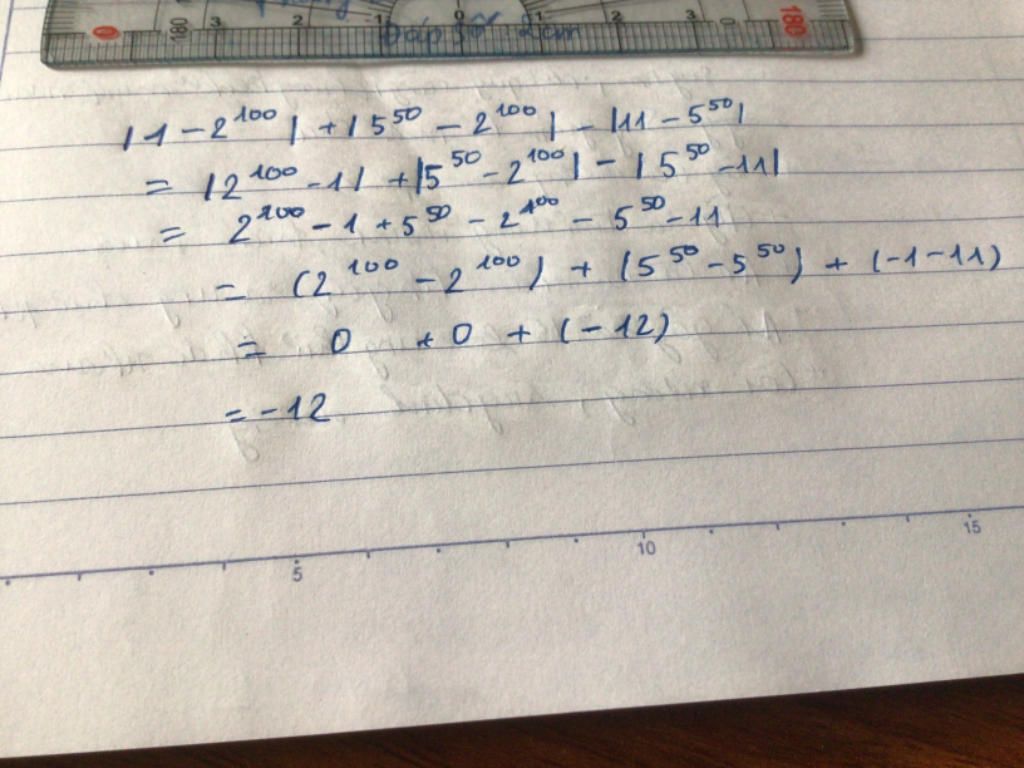 0 180 3 2 1 0 1 2 3 0 180
Đáp số: 2cm
|1 - 2¹⁰⁰| + |5⁵⁰ - 2¹⁰⁰| - |11 - 5⁵⁰|
= |2¹⁰⁰ - 1| + |5⁵⁰ - 2¹⁰⁰| - |5⁵⁰ - 11|
= 2¹⁰⁰ - 1 + 5⁵⁰ - 2¹⁰⁰ - 5⁵⁰ - 11
= (2¹⁰⁰ - 2¹⁰⁰) + (5⁵⁰ - 5⁵⁰) + (-1 - 11)
= 0 + 0 + (-12)
= -12
5 10 15